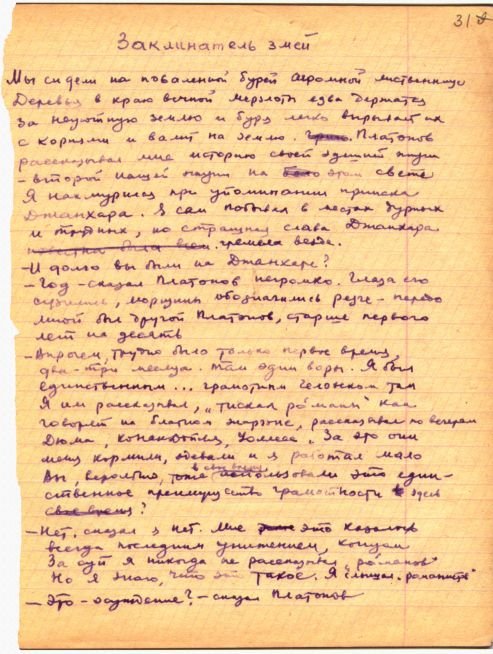 31
Заклинатель змей
Мы сидели на поваленной бурей огромной лиственнице
Деревья в краю вечной мерзлоты едва держатся
за неуютную землю и буря легко вырывает их
с корнями и валит на землю. Платонов
рассказывал мне историю своей здешней жизни
- второй нашей жизни на этом свете
Я нахмурился при упоминании прииска
Джанхара. Я сам побывал в местах дурных
и трудных, но страшная слава Джанхара
гремела везде.
- И долго вы были на Джанхаре?
- Год - сказал Платонов негромко. Глаза его
сузились, морщины обозначились резче - передо
мной был другой Платонов, старше первого
лет на десять
- Впрочем, трудно было только первое время,
два-три месяца. Там одни воры. Я был
единственным... грамотным человеком там
Я им рассказывал, „тискал рóманы" как
говорят на блатном жаргоне, рассказывал по вечерам
Дюма, Конан Дойля, Уоллеса. За это они
меня кормили, одевали и я работал мало
Вы, вероятно, тоже в свое время использовали это един-
ственное преимущество грамотности здесь
?
- Нет, сказал я нет. Мне это казалось
всегда последним унижением, концом
За суп я никогда не рассказывал „романов"
Но я знаю, что это такое. Я слышал „романистов"
- Это - осуждение? - сказал Платонов